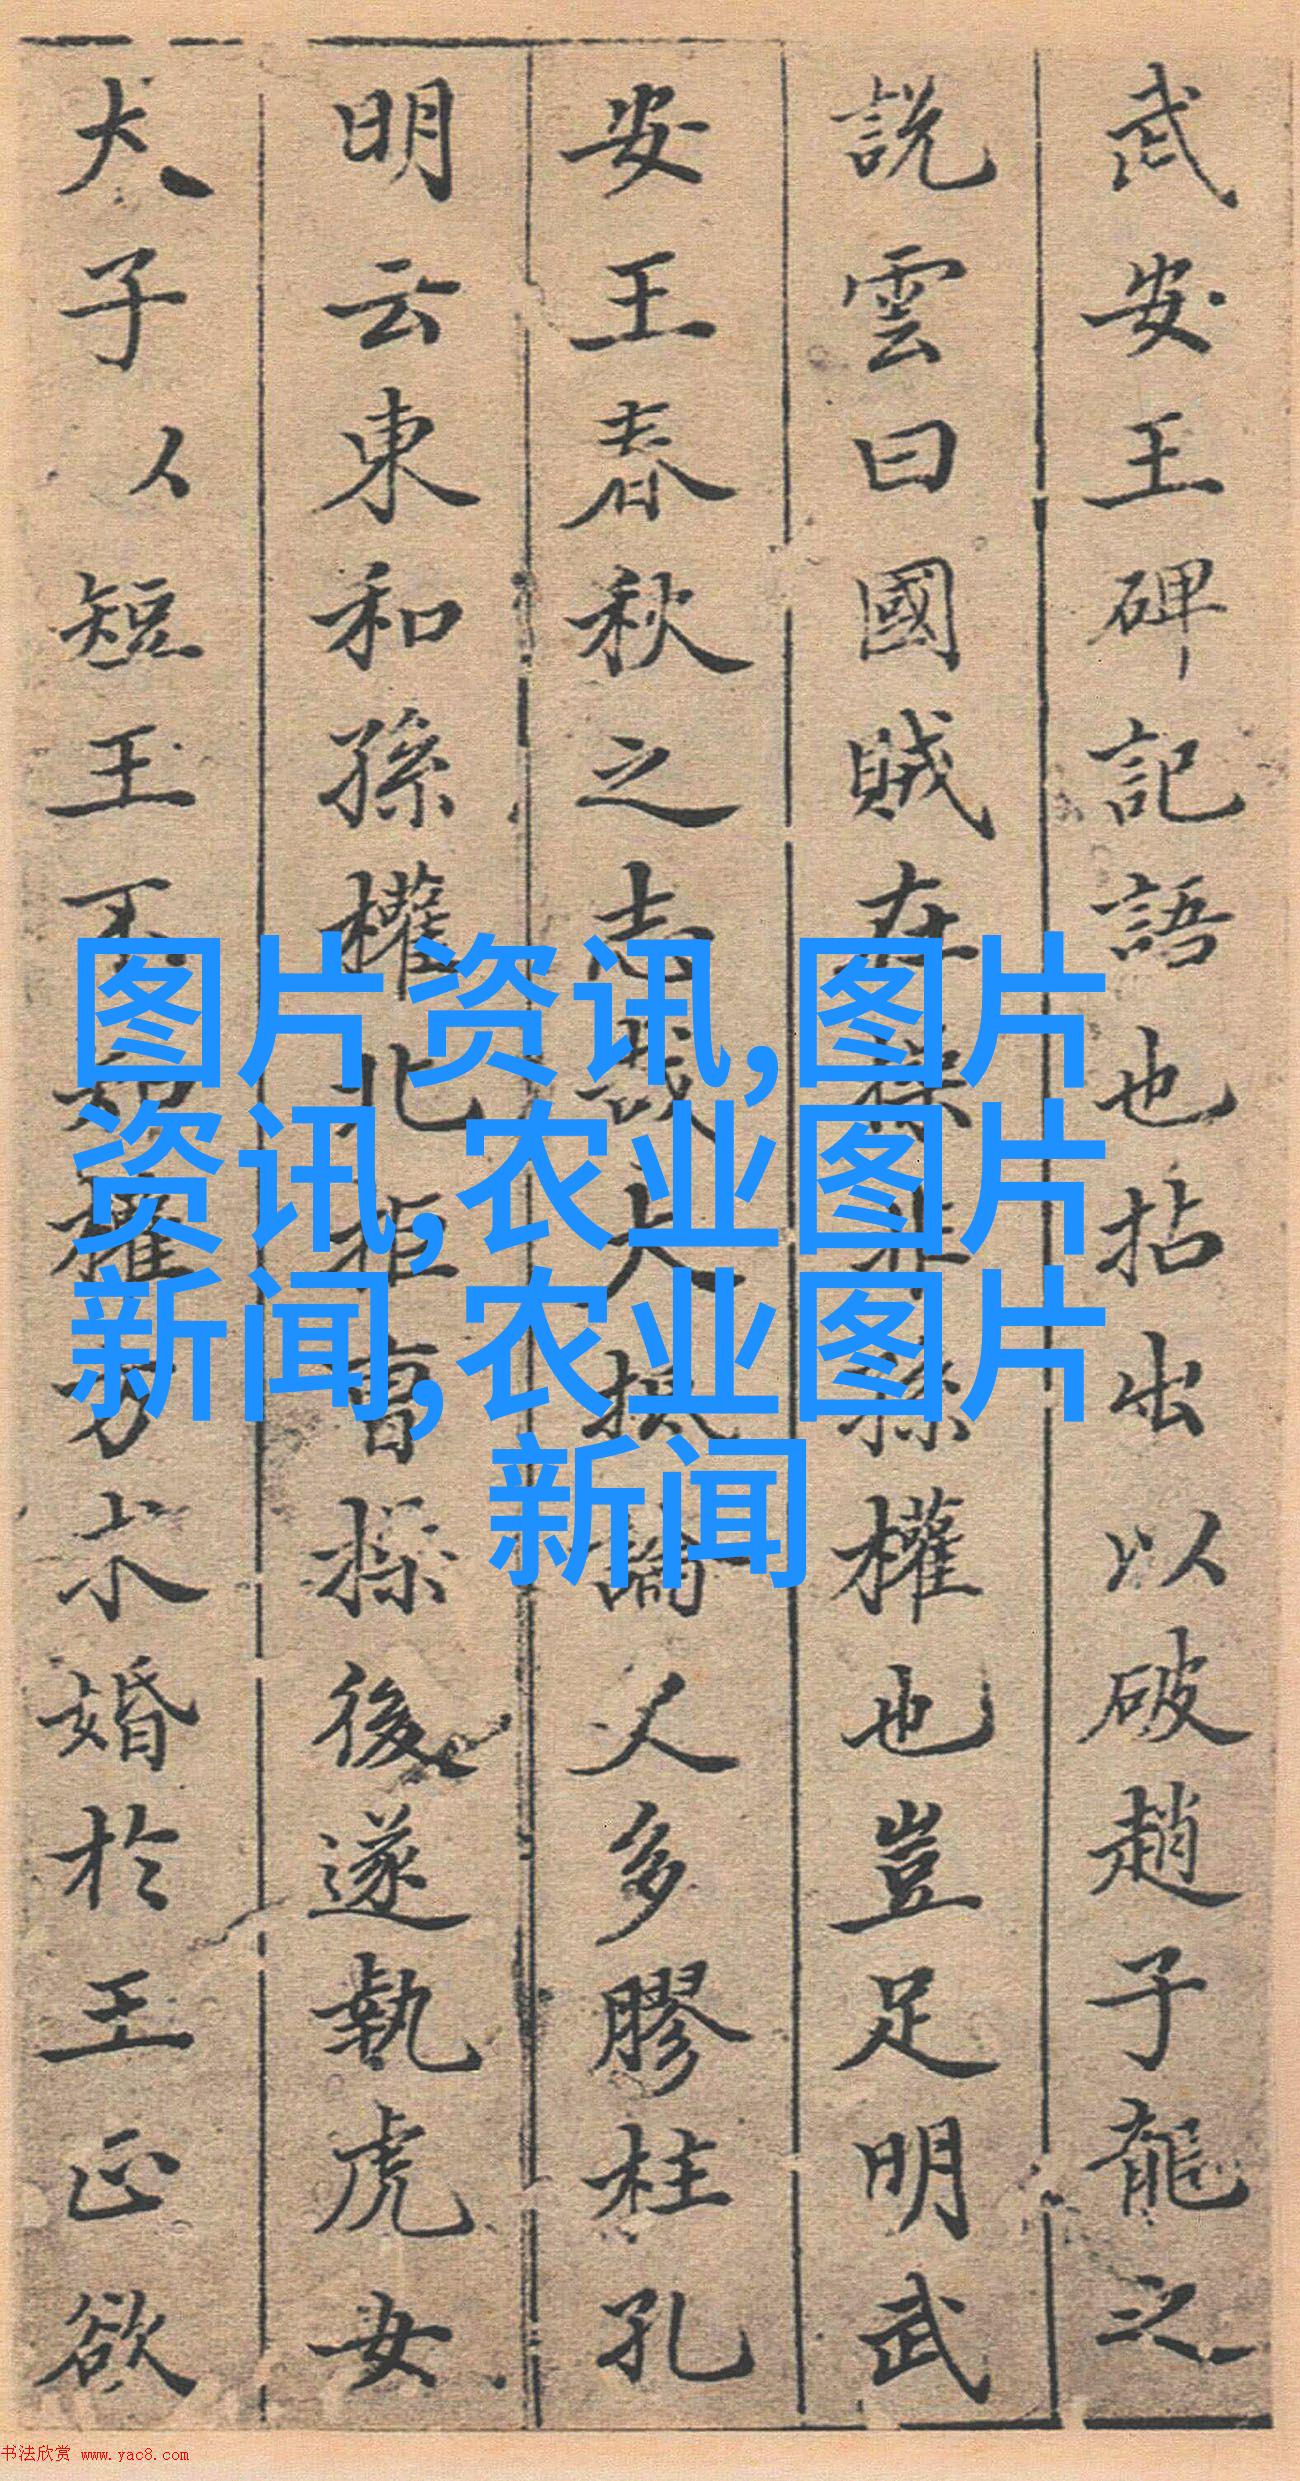 武安王碑記語也拈出以破趙子龍之
說雲曰國賊在操非孫權也豈足明武
安王春秋之志哉大抵論人多膠柱孔
明云東和孫權北拒曹操後遂執虎女
犬子人短王不知權方求婚於王正欲
图片资讯,图片
资讯,农业图片
新闻,农业图片
新闻
书法欣赏 www.yac8.com